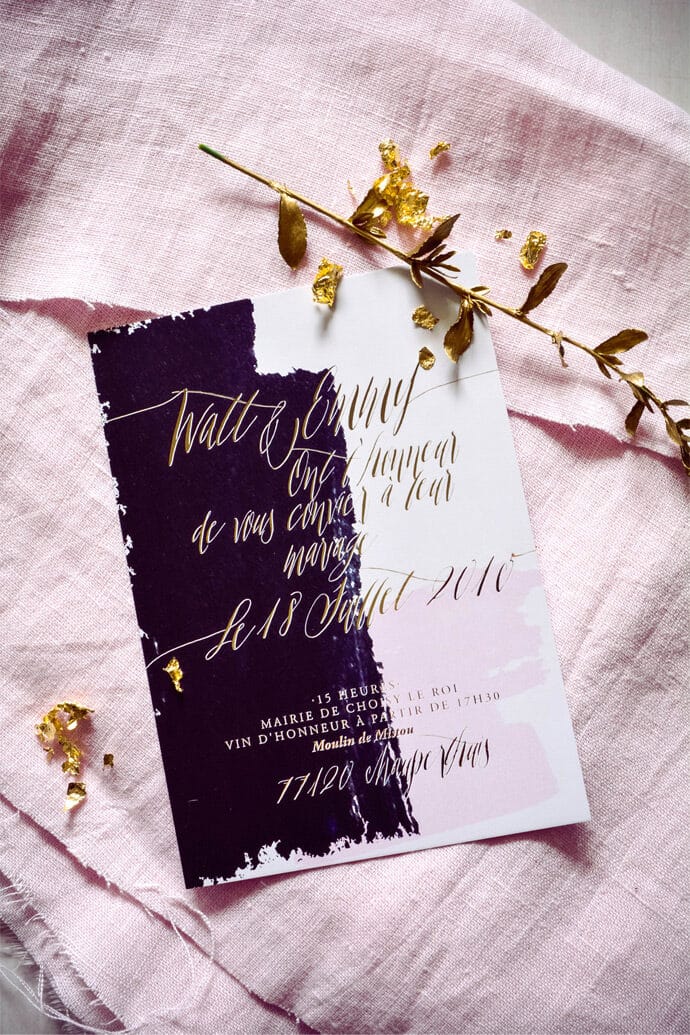 Walt & Emmy
Ont l'honneur
de vous convier à leur
mariage
Le 18 Juillet 2016
·15 HEURES·
MAIRIE DE CHOISY LE ROI
VIN D'HONNEUR À PARTIR DE 17H30
Moulin de Mistou
77120 Maupertuis